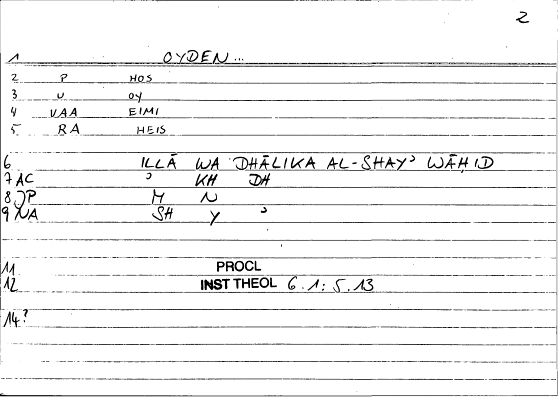 2
1 OYDEN...
2 P HOS
3 U OY
4 VAA EIMI
5 RA HEIS
6 ILLĀ WA DHĀLIKA AL-SHAYʾ WĀḤID
7 AC ʾ KH DH
8 JP M N
9 NA SH Y ʾ
11 PROCL
12 INST THEOL 6.1: 5.13
14?